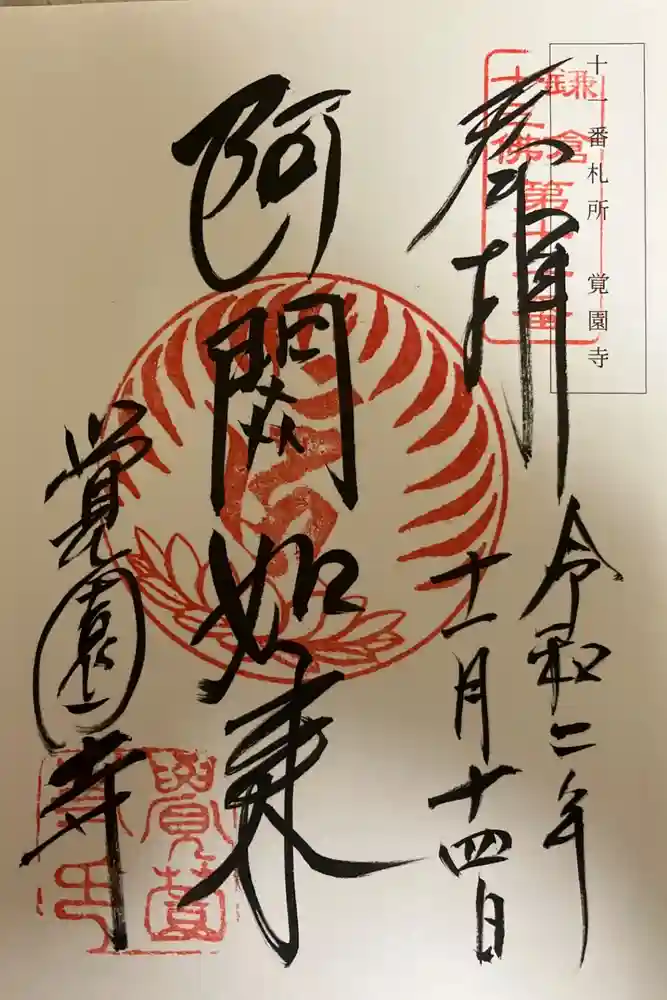 十一番札所 覚園寺
鎌倉
十三佛第十一番
奉拝
令和二年
十一月十四日
阿閦如来
覚園寺